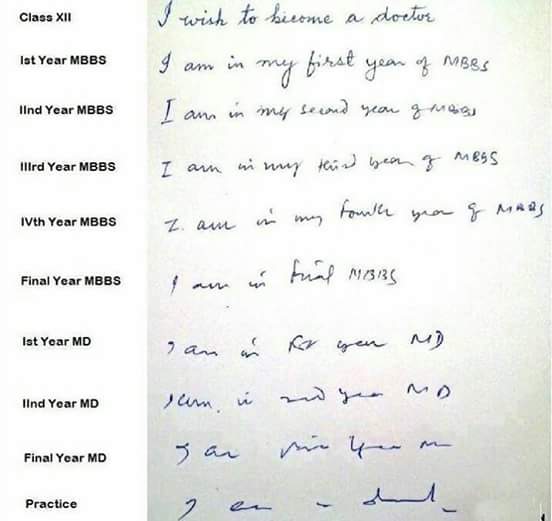 Class XII I wish to become a doctor
Ist Year MBBS I am in my first year of MBBS
IInd Year MBBS I am in my second year of MBBS
IIIrd Year MBBS I am in my third year of MBBS
IVth Year MBBS I am in my fourth year of MBBS
Final Year MBBS I am in final MBBS
Ist Year MD I am in year MD
IInd Year MD I am in 2nd year MD
Final Year MD I am year
Practice I am